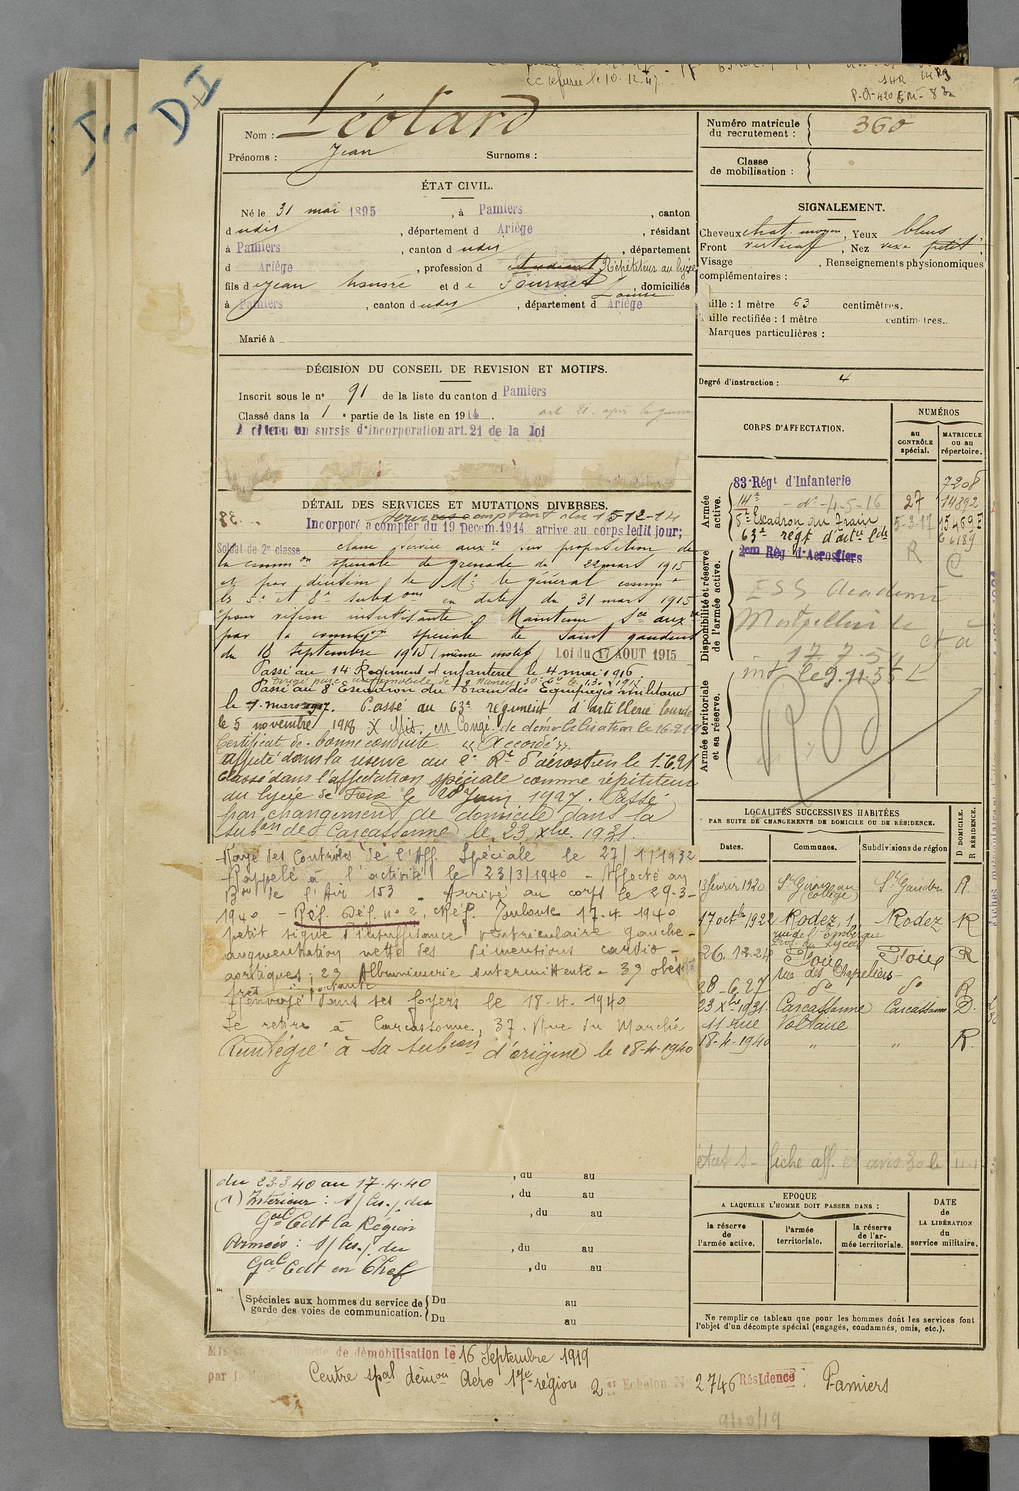 D+I
cc refusé le 10.12.47
Nom : Léotard
Prénoms : Jean Surnoms :
Numéro matricule du recrutement : 360
Classe de mobilisation :
ÉTAT CIVIL.
Né le 31 mai 1895, à Pamiers, canton
dudit, département d Ariège, résidant
à Pamiers, canton dudit, département
d Ariège, profession d étudiant Répétiteur au lycée
fils de Jean Honoré et de Fournié Louise, domiciliés
à Pamiers, canton dudit, département d Ariège
Marié à
SIGNALEMENT.
Cheveux chat. moyen, Yeux bleus
Front vertical, Nez vexe petit
Visage , Renseignements physionomiques
complémentaires :
aille : 1 mètre 63 centimètres.
aille rectifiée : 1 mètre centimètres.
Marques particulières :
Degré d'instruction : 4
DÉCISION DU CONSEIL DE REVISION ET MOTIFS.
Inscrit sous le n° 91 de la liste du canton d Pamiers
Classé dans la 1e partie de la liste en 1914.
A obtenu un sursis d'incorporation art. 21 de la loi
CORPS D'AFFECTATION.
NUMÉROS
au CONTRÔLE spécial.
MATRICULE ou au répertoire.
Armée active.
83e Régt d'Infanterie 7208
14e - do - 4-5-16 27 14892
8e Escadron du Train 5-3-17
63e régt d'artie lde 6189
2eme Rég d'Aerostiers
Disponibilité et réserve de l'armée active.
ESS Academi
Montpellier le
17.7.54
Armée territoriale et sa réserve.
DÉTAIL DES SERVICES ET MUTATIONS DIVERSES.
services comptant du 15-12-14
Incorporé à compter du 19 Decem. 1914 arrivé au corps ledit jour;
Soldat de 2e classe classé service auxre sur proposition de
la common spéciale de grenade du 22 mars 1915
et par décision de Mr le général commt
les 5e et 8e subdons en date du 31 mars 1915
pour vision insuffisante. Maintenu Sce auxre
par la commission spéciale de Saint gaudens
du 16 septembre 1915 (même motif) Loi du 17 AOUT 1915
Passé au 14 Régiment d'infanterie le 4 mai 1916
Passé au 8e Escadron du Train des Equipages militaires
le 7 mars 1917. Passé au 63e régiment d'artillerie lourde
le 5 novembre 1918 X Mis en Congé de démobilisation le 16-9-19
Certificat de bonne conduite "Accordé".
Affecté dans la réserve au 2e Rt d'aérostiers le 1.6.21
Classé dans l'affectation spéciale comme répétiteur
du lycée de Foix le 20 Juin 1927. Passé
par changement de domicile dans la
subon de Carcassonne le 23 Xbre 1931.
Rayé des Contrôles de l'Aff. Spéciale le 27/1/1932
Rappelé à l'activité le 23/3/1940 - Affecté au
Bon de l'Air 153 - Arrivé au corps le 29-3-
1940 - Réf. Déf. n° 2, Réf. Toulouse 17.4.1940
petit signe d'insuffisance ventriculaire gauche -
augmentation nette des dimensions cardio-
aortiques; 2° Albuminurie intermittente - 3° obésité
Renvoyé dans ses foyers le 18.4.1940
Se retire à Carcassonne, 37. Rue du Marché
Réintégré à sa subon d'origine le 18-4-1940
LOCALITÉS SUCCESSIVES HABITÉES
PAR SUITE DE CHANGEMENTS DE DOMICILE OU DE RÉSIDENCE.
Dates. Communes. Subdivisions de région D DOMICILE. R RÉSIDENCE.
13 février 1920 St Girons au collège St Gaudens R.
17 octbre 1922 Rodez 1, Rodez R
Prof. du Lycée
26.12.24 Foix Foix R
rue des Chapeliers
28-6.27 do do R
23 Xbre 1931 Carcassonne Carcassonne D.
11 rue Voltaire
18-4-1940 " " R.
du 23.3.40 au 17.4.40
(1) Intérieur : s/ les./. du
Gal Cdt la Région
Armées : s/ les./. du
Gal Cdt en Chef
, du au
, du au
, du au
, du au
, du au
Spéciales aux hommes du service de garde des voies de communication. Du au
Du au
EPOQUE
A LAQUELLE L'HOMME DOIT PASSER DANS :
la réserve de l'armée active.
l'armée territoriale.
la réserve de l'armée territoriale.
DATE de LA LIBÉRATION du service militaire.
Ne remplir ce tableau que pour les hommes dont les services font
l'objet d'un décompte spécial (engagés, condamnés, omis, etc.).
de démobilisation le 16 Septembre 1919
Centre spal démon Aéro 17e région 2e Echelon N° 2746 Résidence : Pamiers
9/10/19